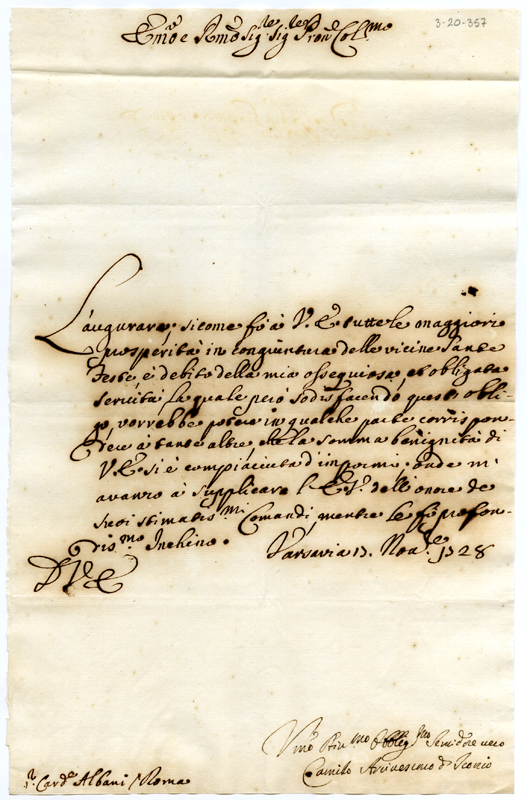 3-20-357
Em.º e Rmõ Sig.re Sig.re Pron Col.mo
L'augurare, sicome fò à V. E. tutte le maggiori
prosperità in congiuntura delle vicine Sante
Feste, è debito della mia ossequiosa, et obligata
servitù, la quale però sodisfacendo questo obli-
go, vorrebbe potere in qualche parte corrispon-
dere à tante altre, che la somma benignità di
V. E. si è compiaciuta d'impormi; onde mi
avanzo à supplicare l'E. V. dell'onore de
suoi stimatis.mi Comandi mentre le fò profon-
dis.mo Inchino. Varsavia 13. Nov.re 1728
D V. E.
Vmo Obblig.mo Servidore vero
Camillo Arcivescovo d'Iconio
S.r Card.e Albani / Roma